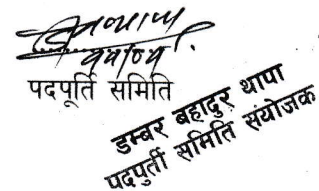 पदपूर्ति समिति
डम्बर बहादुर थापा
पदपुर्ती समिति संयोजक